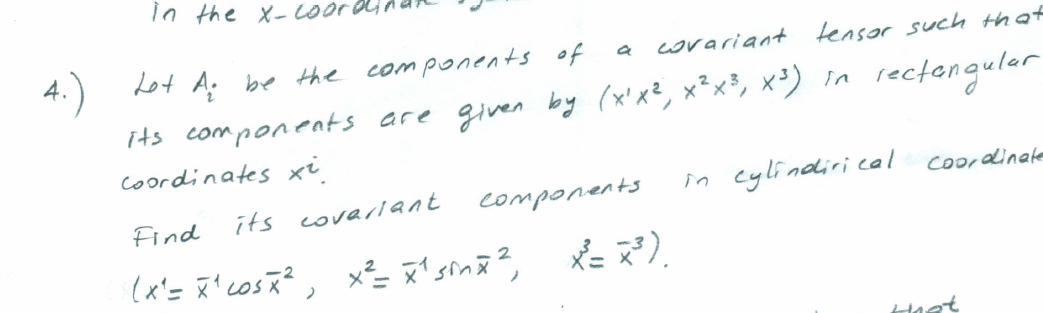 in the x-coordinate
4.) Let Aᵢ be the components of a covariant tensor such that
its components are given by (x¹x², x²x³, x³) in rectangular
coordinates xⁱ.
Find its covariant components in cylindirical coordinate
(x¹= x̄¹ cos x̄², x²= x̄¹ sin x̄², x³= x̄³).
that